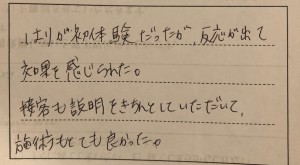 はりが初体験だったが、反応が出て
効果を感じられた。
接客も説明をきちんとしていただいて、
施術もとても良かった。